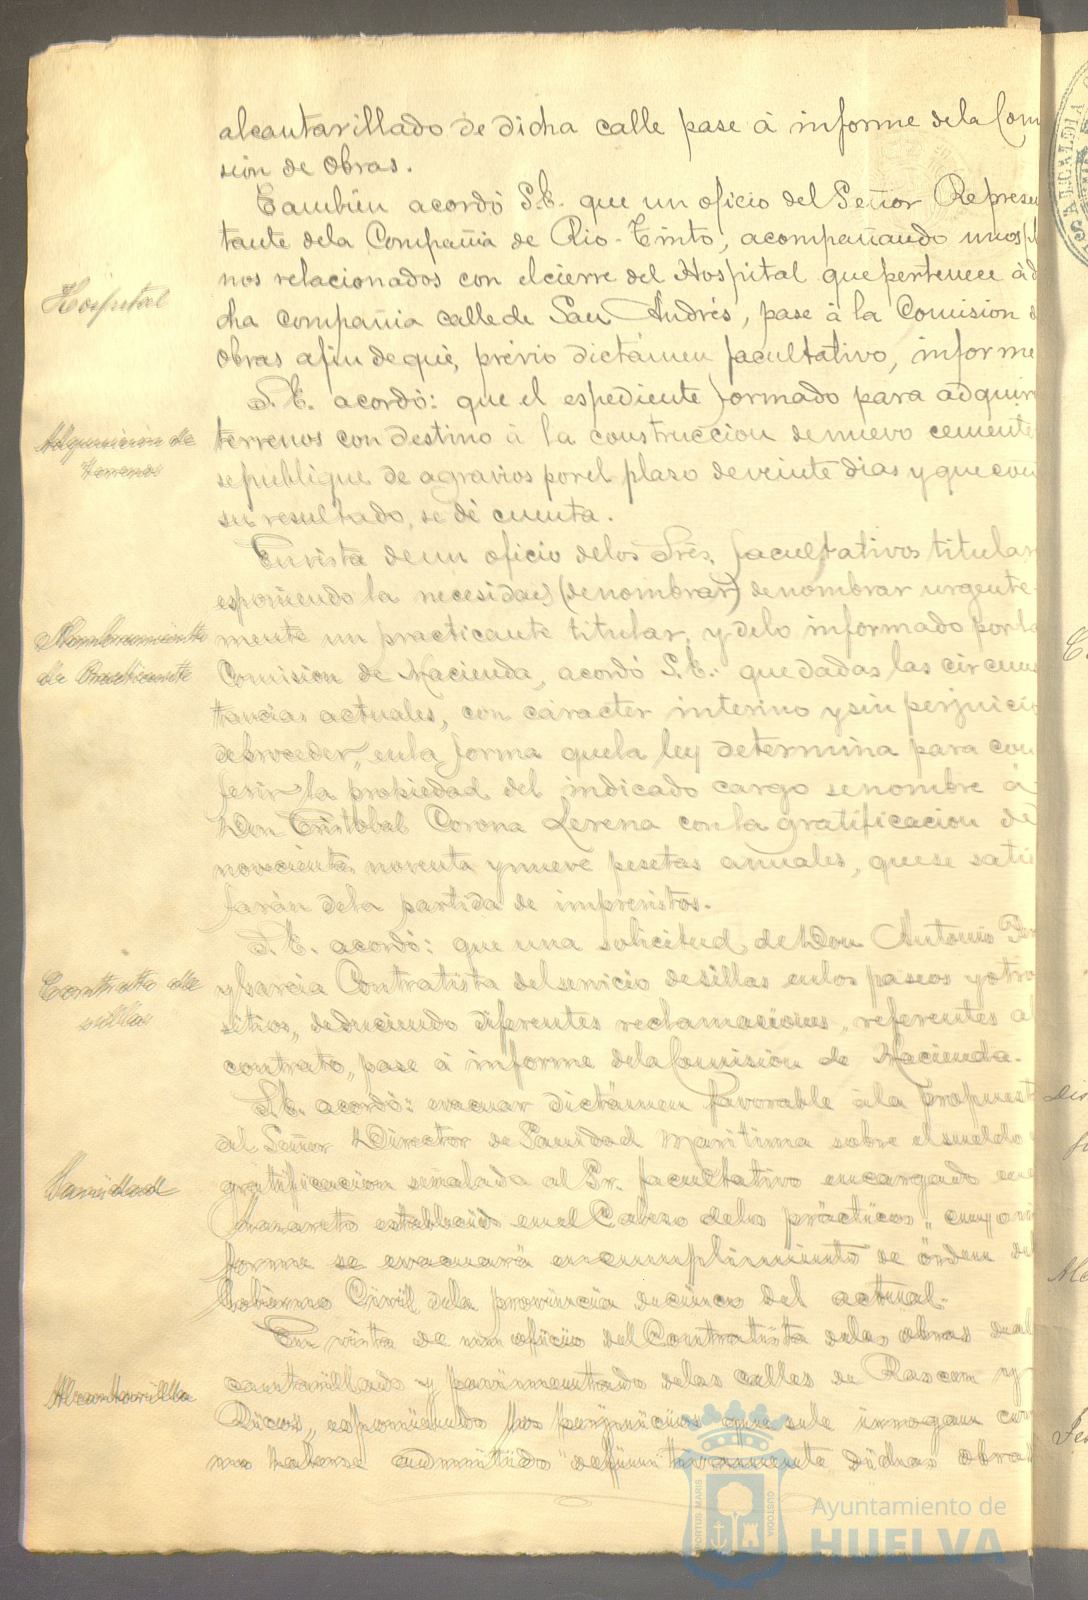 alcantarillado de dicha calle pase á informe de la Com
sion de Obras.
Tambien acordó S.E. que un oficio del Señor Represen
tante dela Compañia de Rio-Tinto, acompañando unos pl
Hospital
nos relacionados con el cierre del Hospital que pertenece á d
cha compañia calle de San Andrés, pase á la Comision
Obras a fin de que, prévio dictámen facultativo, informe
S.E. acordó: que el espediente formado para adquirir
Adquisicion de
terrenos
terrenos con destino á la construccion de nuevo cemente
se publique de agravios por el plaso de veinte dias y que con
su resultado, se dé cuenta.
En vista de un oficio de los Sres. facultativos titular
esponiendo la necesidad (de nombrar) de nombrar urgente-
Nombramiento
de Practicante
mente un practicante titular, y de lo informado por la
Comision de Hacienda, acordó S.E. que dadas las circuns
tancias actuales, con cáracter interino y sin perjuicio
de proceder, en la forma que la ley determina para con
ferir la propiedad del indicado cargo se nombre á
Don Cristobal Corona Lerena con la gratificacion de
novecientas noventa y nueve pesetas anuales, que se satis
farán de la partida de imprevistos.
S.E. acordó: que una solicitud de Don Antonio
Contrato de
sillas
y Garcia Contratista del servicio de sillas en los paseos y otro
sitios, deduciendo diferentes reclamaciones, referentes al
contrato, pase á informe de la Comision de Hacienda.
S.E. acordó: evacuar dictámen favorable á la propuest
del Señor Director de Sanidad Maritima sobre el sueldo
Sanidad
gratificacion señalada al Sr. facultativo encargado en el
Lazareto establecido en el Cabezo de los prácticos, cuyo in
forme se evacuará en cumplimiento de órden del
Gobierno Civil de la provincia de cinco del actual.
En vista de un oficio del Contratista de las obras de al
Alcantarilla
cantarillado y pavimentado de las calles de Rascon y
Ricos, esponiendo los perjuicios que se le irrogan con
no haberse admitido definitivamente dichas obras
PORTUS MARIS
CUSTODIA
Ayuntamiento de
HUELVA